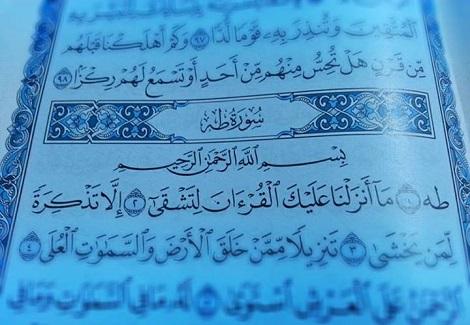 ٱلْمُتَّقِينَ وَتُنذِرَ بِهِۦ قَوْمًا لُّدًّا ٩٧ وَكَمْ أَهْلَكْنَا قَبْلَهُم
مِّن قَرْنٍ هَلْ تُحِسُّ مِنْهُم مِّنْ أَحَدٍ أَوْ تَسْمَعُ لَهُمْ رِكْزًا ٩٨
سُورَةُ طه
بِسْمِ ٱللَّهِ ٱلرَّحْمَٰنِ ٱلرَّحِيمِ
طه ١ مَآ أَنزَلْنَا عَلَيْكَ ٱلْقُرْءَانَ لِتَشْقَىٰٓ ٢ إِلَّا تَذْكِرَةً
لِّمَن يَخْشَىٰ ٣ تَنزِيلًا مِّمَّنْ خَلَقَ ٱلْأَرْضَ وَٱلسَّمَٰوَٰتِ ٱلْعُلَى ٤
ٱلرَّحْمَٰنُ عَلَى ٱلْعَرْشِ ٱسْتَوَىٰ ٥ لَهُۥ مَا فِى ٱلسَّمَٰوَٰتِ وَمَا فِى